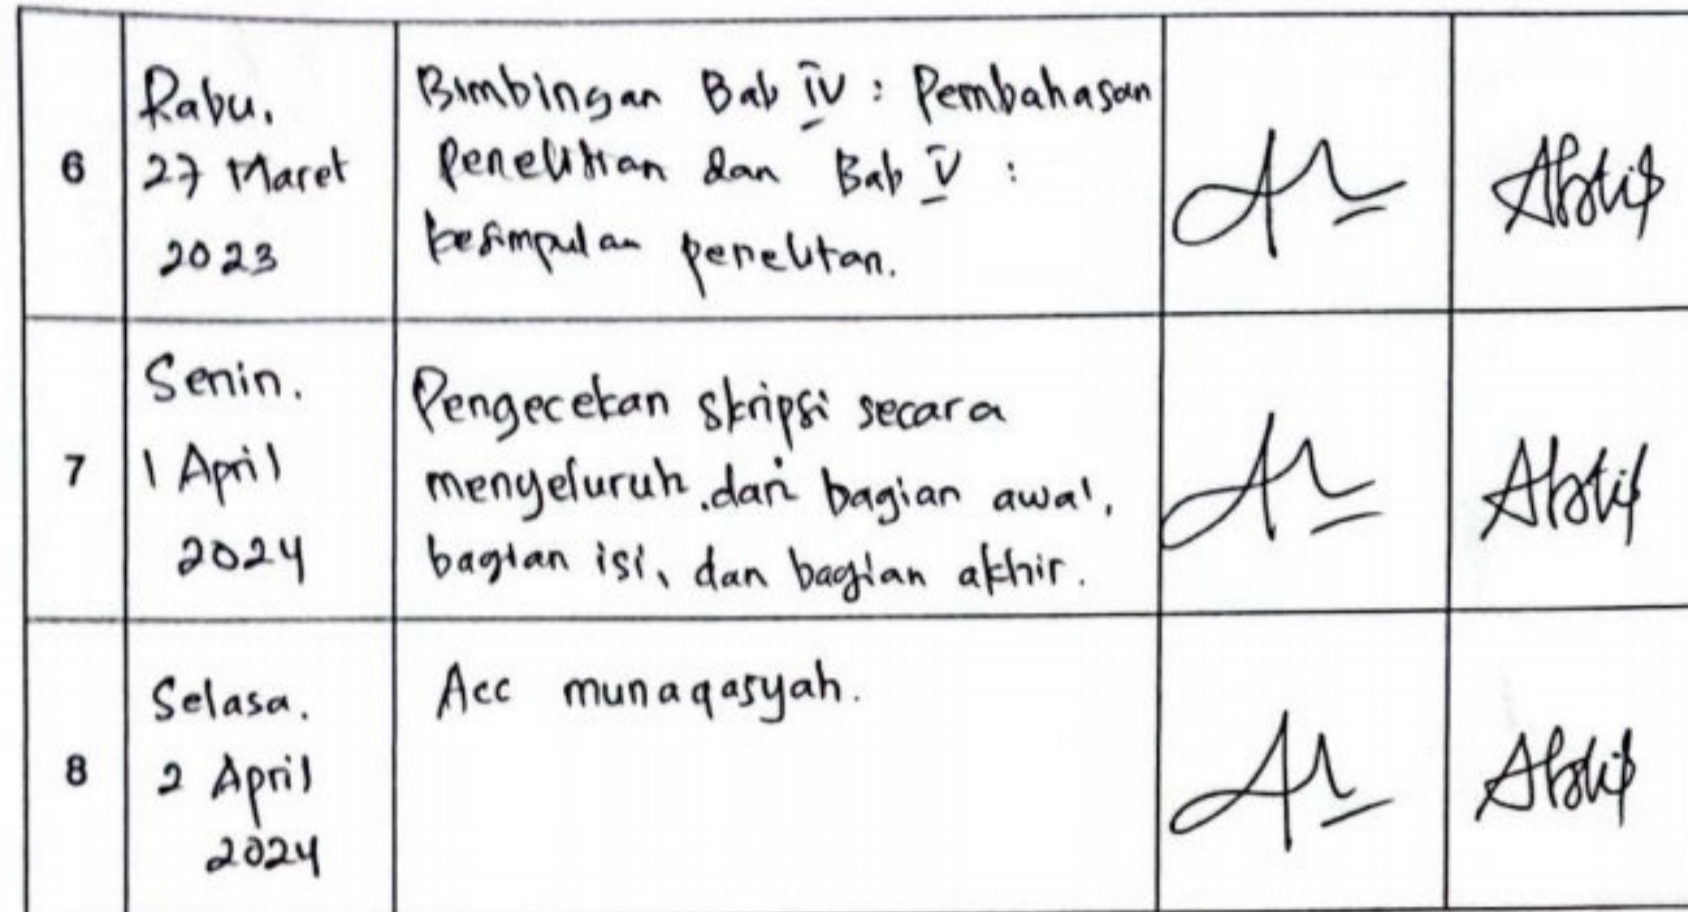 6
Rabu.
27 Maret
2023
Bimbingan Bab IV : Pembahasan
Penelitian dan Bab V :
kesimpulan penelitan.
7
Senin.
1 April
2024
Pengecekan skripsi secara
menyeluruh.dari bagian awal,
bagian isi, dan bagian akhir.
8
Selasa.
2 April
2024
Acc munaqasyah.